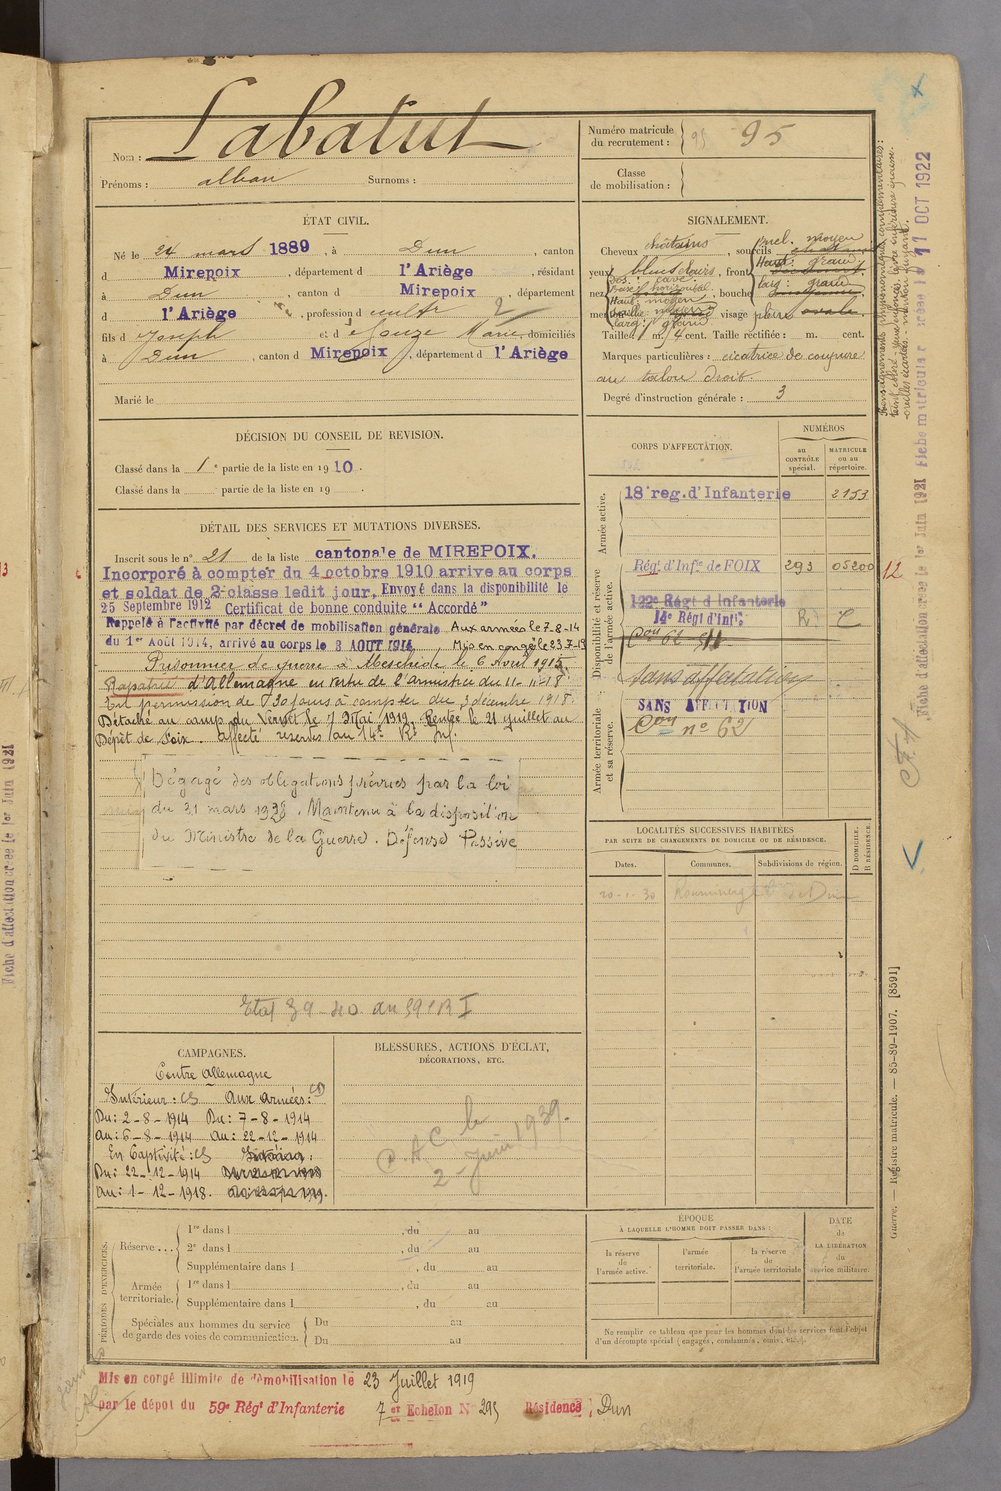 Labatut
Nom :
Prénoms : alban Surnoms :
Numéro matricule du recrutement : 95 95
Classe de mobilisation :
ÉTAT CIVIL.
Né le 24 mars 1889, à Dun, canton
d Mirepoix, département d l'Ariège, résidant
à Dun, canton d Mirepoix, département
d l'Ariège, profession d cultr
fils d Joseph et d Marie, domiciliés
à Dun, canton d Mirepoix, département d l'Ariège
Marié le
SIGNALEMENT.
Cheveux châtains, sourcils
yeux bleus clairs, front
nez, bouche
menton, visage plein ovale.
Taille m. cent. Taille rectifiée : m. cent.
Marques particulières : cicatrice de coupure
au talon droit.
Degré d'instruction générale : 3
DÉCISION DU CONSEIL DE REVISION.
Classé dans la 1e partie de la liste en 1910.
Classé dans la partie de la liste en 19 .
DÉTAIL DES SERVICES ET MUTATIONS DIVERSES.
Inscrit sous le n° 21 de la liste cantonale de MIREPOIX.
Incorporé à compter du 4 octobre 1910 arrive au corps
et soldat de 2e classe ledit jour. Envoyé dans la disponibilité le
25 Septembre 1912 Certificat de bonne conduite "Accordé"
Rappelé à l'activité par décret de mobilisation générale Aux armées le 7-8-14
du 1er Août 1914, arrivé au corps le 3 AOUT 1914 Mis en congé le 23.7.19
Prisonnier de guerre à Meschede le 6 Avril 1915.
Rapatrié d'Allemagne en vertu de l'armistice du 11-11-18
En permission de 30 jours à compter du 3 décembre 1918.
Détaché au camp du Vernet le 7 Mai 1919. Rentré le 21 juillet au
Dépôt de Foix. affecté réserves au 14e Rt Inf.
Dégagé des obligations prévues par la loi
du 31 mars 1928. Maintenu à la disposition
du Ministre de la Guerre. Défense Passive
Etat 39-40 au 59e R I
CORPS D'AFFECTATION.
NUMÉROS
au CONTRÔLE spécial.
MATRICULE ou au répertoire.
Armée active.
18e reg. d'Infanterie 2153
Disponibilité et réserve de l'armée active.
Régt d'Infie de FOIX 293 05200 12
122e Régt d'Infanterie
14e Régt d'Infie
Sans affectation
Armée territoriale et sa réserve.
SANS AFFECTATION
Con n° 62
LOCALITÉS SUCCESSIVES HABITÉES
PAR SUITE DE CHANGEMENTS DE DOMICILE OU DE RÉSIDENCE.
Dates. Communes. Subdivisions de région. D DOMICILE. R RÉSIDENCE.
20-1-30
CAMPAGNES.
Contre Allemagne
Intérieur : CS Aux Armées : CD
Du : 2-8-1914 Du : 7-8-1914
Au : 6-8-1914 Au : 22-12-1914
En Captivité : CS
Du : 22-12-1914
Au : 1-12-1918.
BLESSURES, ACTIONS D'ÉCLAT,
DÉCORATIONS, ETC.
C.A.C. le
2 Juin 1939.
PÉRIODES D'EXERCICES.
Réserve ...
1re dans l , du au
2e dans l , du au
Supplémentaire dans l , du au
Armée territoriale.
1re dans l , du au
Supplémentaire dans l , du au
Spéciales aux hommes du service de garde des voies de communication.
Du au
Du au
ÉPOQUE
À LAQUELLE L'HOMME DOIT PASSER DANS :
la réserve de l'armée active.
l'armée territoriale.
la réserve de l'armée territoriale
DATE de LA LIBÉRATION du service militaire.
Ne remplir ce tableau que pour les hommes dont les services font l'objet
d'un décompte spécial (engagés, condamnés, omis, etc.).
Mis en congé illimité de démobilisation le 23 Juillet 1919
par le dépôt du 59e Régt d'Infanterie 7er Echelon N° 293 Résidence : Dun
Renseignements physionomiques complémentaires :
Fiche d'affectation créée le 1er Juin 1921 Fiche matricule créée le 11 OCT 1922
Guerre. — Registre matricule. — 85-89-1907. [8591]
Fiche d'affectation créée le 1er Juin 1921